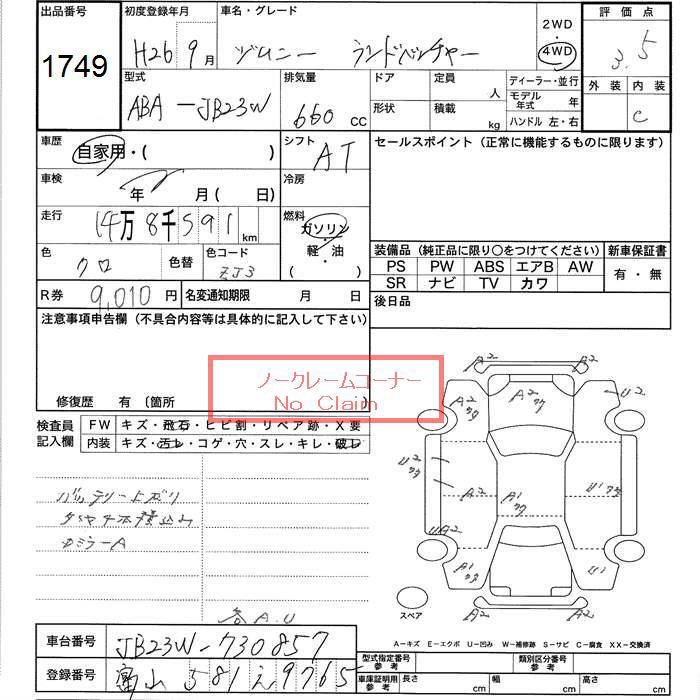 出品番号
1749
初度登録年月
H26 9月
車名・グレード
ジムニー ランドベンチャー
2WD
・
4WD
評価点
3.5
外装 内装
C
型式
ABA-JB23W
排気量
660 CC
ドア
形状
定員 人
積載 kg
ディーラー・並行
モデル年式 年
ハンドル 左・右
車歴
自家用・( )
シフト
AT
車検
年 月(日)
冷房
走行
14万8千591km
燃料
ガソリン
軽・油
( )
色
クロ
色替
色コード
ZJ3
R券
9,010円
名変通知期限 月 日
セールスポイント(正常に機能するものに限ります)
装備品(純正品に限り〇をつけてください)
PS PW ABS エアB AW
SR ナビ TV カワ
新車保証書
有・無
後日品
注意事項申告欄(不具合内容等は具体的に記入して下さい)
ノークレームコーナー
No Claim
修復歴 有〔箇所
検査員記入欄
FW キズ・飛石・ヒビ割・リペア跡・X要
内装 キズ・汚レ・コゲ・穴・スレ・キレ・破レ
バッテリー上ガリ
タイヤ4本積込み
カミラーA
各A.U
A2 A2
A2 A2 U2
U2 A2 A1 U1
UA2
A2 U1
A2 A2
スペア
A-キズ E-エクボ U-凹み W-補修跡 S-サビ C-腐食 XX-交換済
車台番号
JB23W-730857
登録番号
富山581え9765
型式指定番号
参考
類別区分番号
参考
車庫証明用
参考
長さ cm
幅 cm
高さ cm